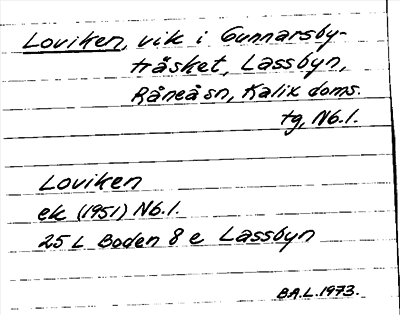 Loviken, vik i Gunnarsby-
träsket, Lassbyn,
Råneåsn, Kalix doms.
tg, Nb.l.
Loviken
ek (1951) Nb.l.
25 L Boden 8 e Lassbyn
B.A.L. 1973.